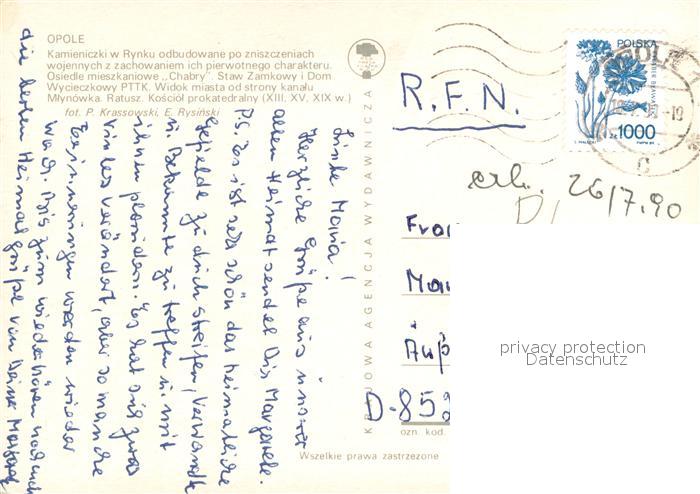 OPOLE
Kamieniczki w Rynku odbudowane po zniszczeniach
wojennych z zachowaniem ich pierwotnego charakteru.
Osiedle mieszkaniowe „Chabry”. Staw Zamkowy i Dom
Wycieczkowy PTTK. Widok miasta od strony kanału
Młynówka. Ratusz. Kościół prokatedralny (XIII, XV, XIX w.)
fot. P. Krassowski, E. Rysiński
Liebe Maria!
Herzliche Grüße aus unserer
alten Heimat sendet Dir Margarete.
P.S. Es ist sehr schön das Heimatliche
Gefilde zu durchstreifen, Verwandte
u. Bekannte zu treffen u. mit
ihnen plaudern. Es hat sich zwar
vieles verändert, aber so manche
Erinnerungen werden wieder
wach. Bis zum wiederhören nochmals
die besten Heimatgrüße von Deiner
KRAJOWA AGENCJA WYDAWNICZA
R.F.N.
POLSKA
1000
OPOLE
erh. 26/7.90
D-859
ozn. kod.
Wszelkie prawa zastrzeżone
privacy protection
Datenschutz